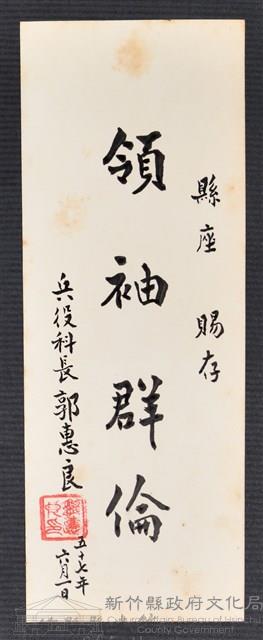 縣座 賜存
領袖群倫
兵役科長郭惠良
五七年
六月一日
新竹縣政府文化局
Cultural Affairs Bureau of Hsinchu
County Government